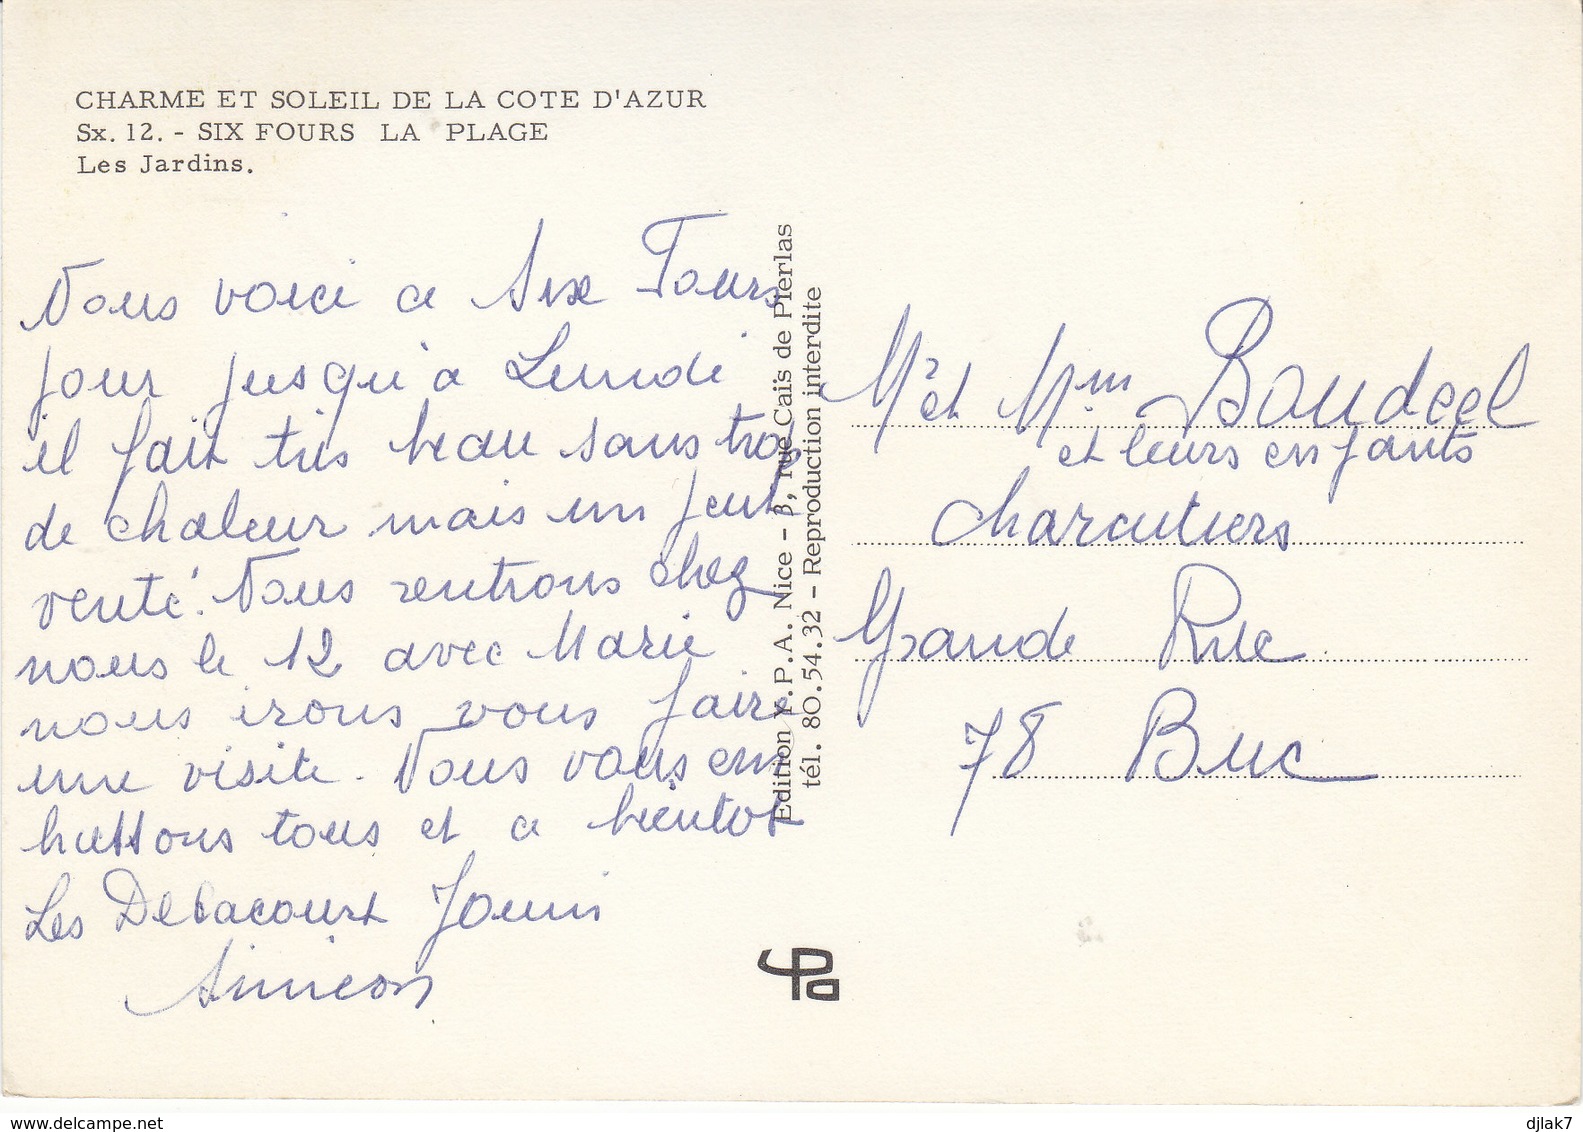 CHARME ET SOLEIL DE LA COTE D'AZUR
Sx. 12. - SIX FOURS LA PLAGE
Les Jardins.
Nous voici a Six Fours
pour jusqu'à Lundi
il fait très beau sans trop
de chaleur mais un peut
venté. Nous rentrons chez
nous le 12 avec Marie
nous irons vous faire
une visite. Nous vous em
brassons tous et a bientot
Les Delacourt
Simeon
Edition Y.P.A. Nice - 3, rue Caïs de Pierlas
tél. 80.54.32 - Reproduction interdite
Mr et Mme
et leurs enfants
charcutiers
Grande Rue
78 Buc
ypa
delcampe.net
djlak7